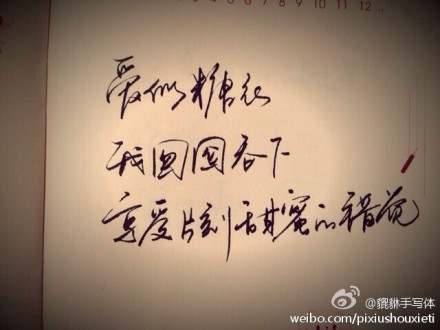 8 9 10 11 12 ...
爱似糖衣
我囫囵吞下
享受片刻甜蜜的错觉
@貔貅手写体
weibo.com/pixiushouxieti